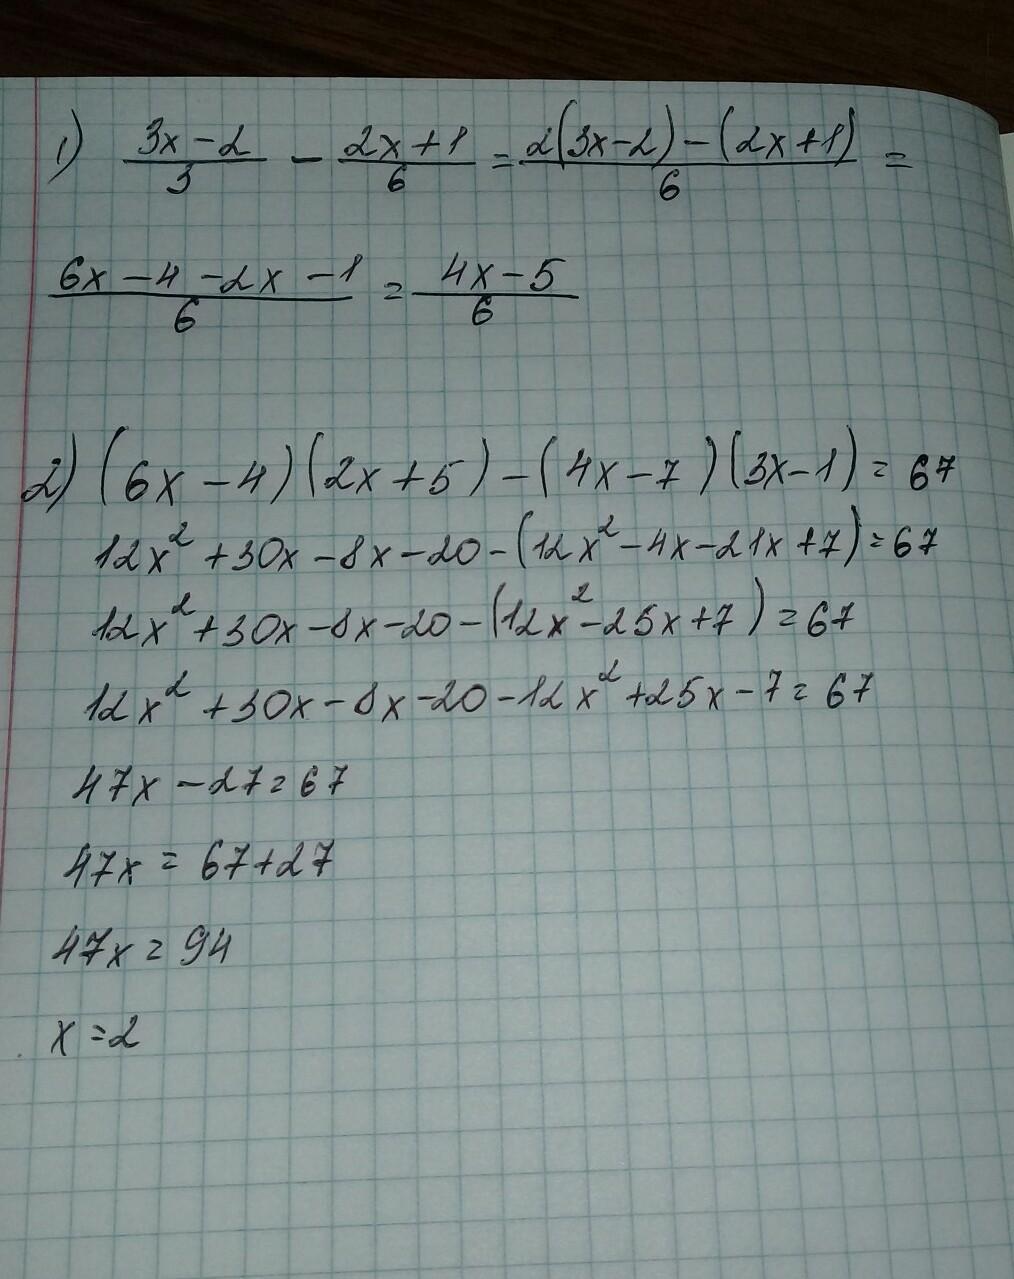 1) (3x-2)/3 - (2x+1)/6 = (2(3x-2)-(2x+1))/6 =
(6x-4-2x-1)/6 = (4x-5)/6
2) (6x-4)(2x+5)-(4x-7)(3x-1)=67
12x²+30x-8x-20-(12x²-4x-21x+7)=67
12x²+30x-8x-20-(12x²-25x+7)=67
12x²+30x-8x-20-12x²+25x-7=67
47x-27=67
47x=67+27
47x=94
x=2